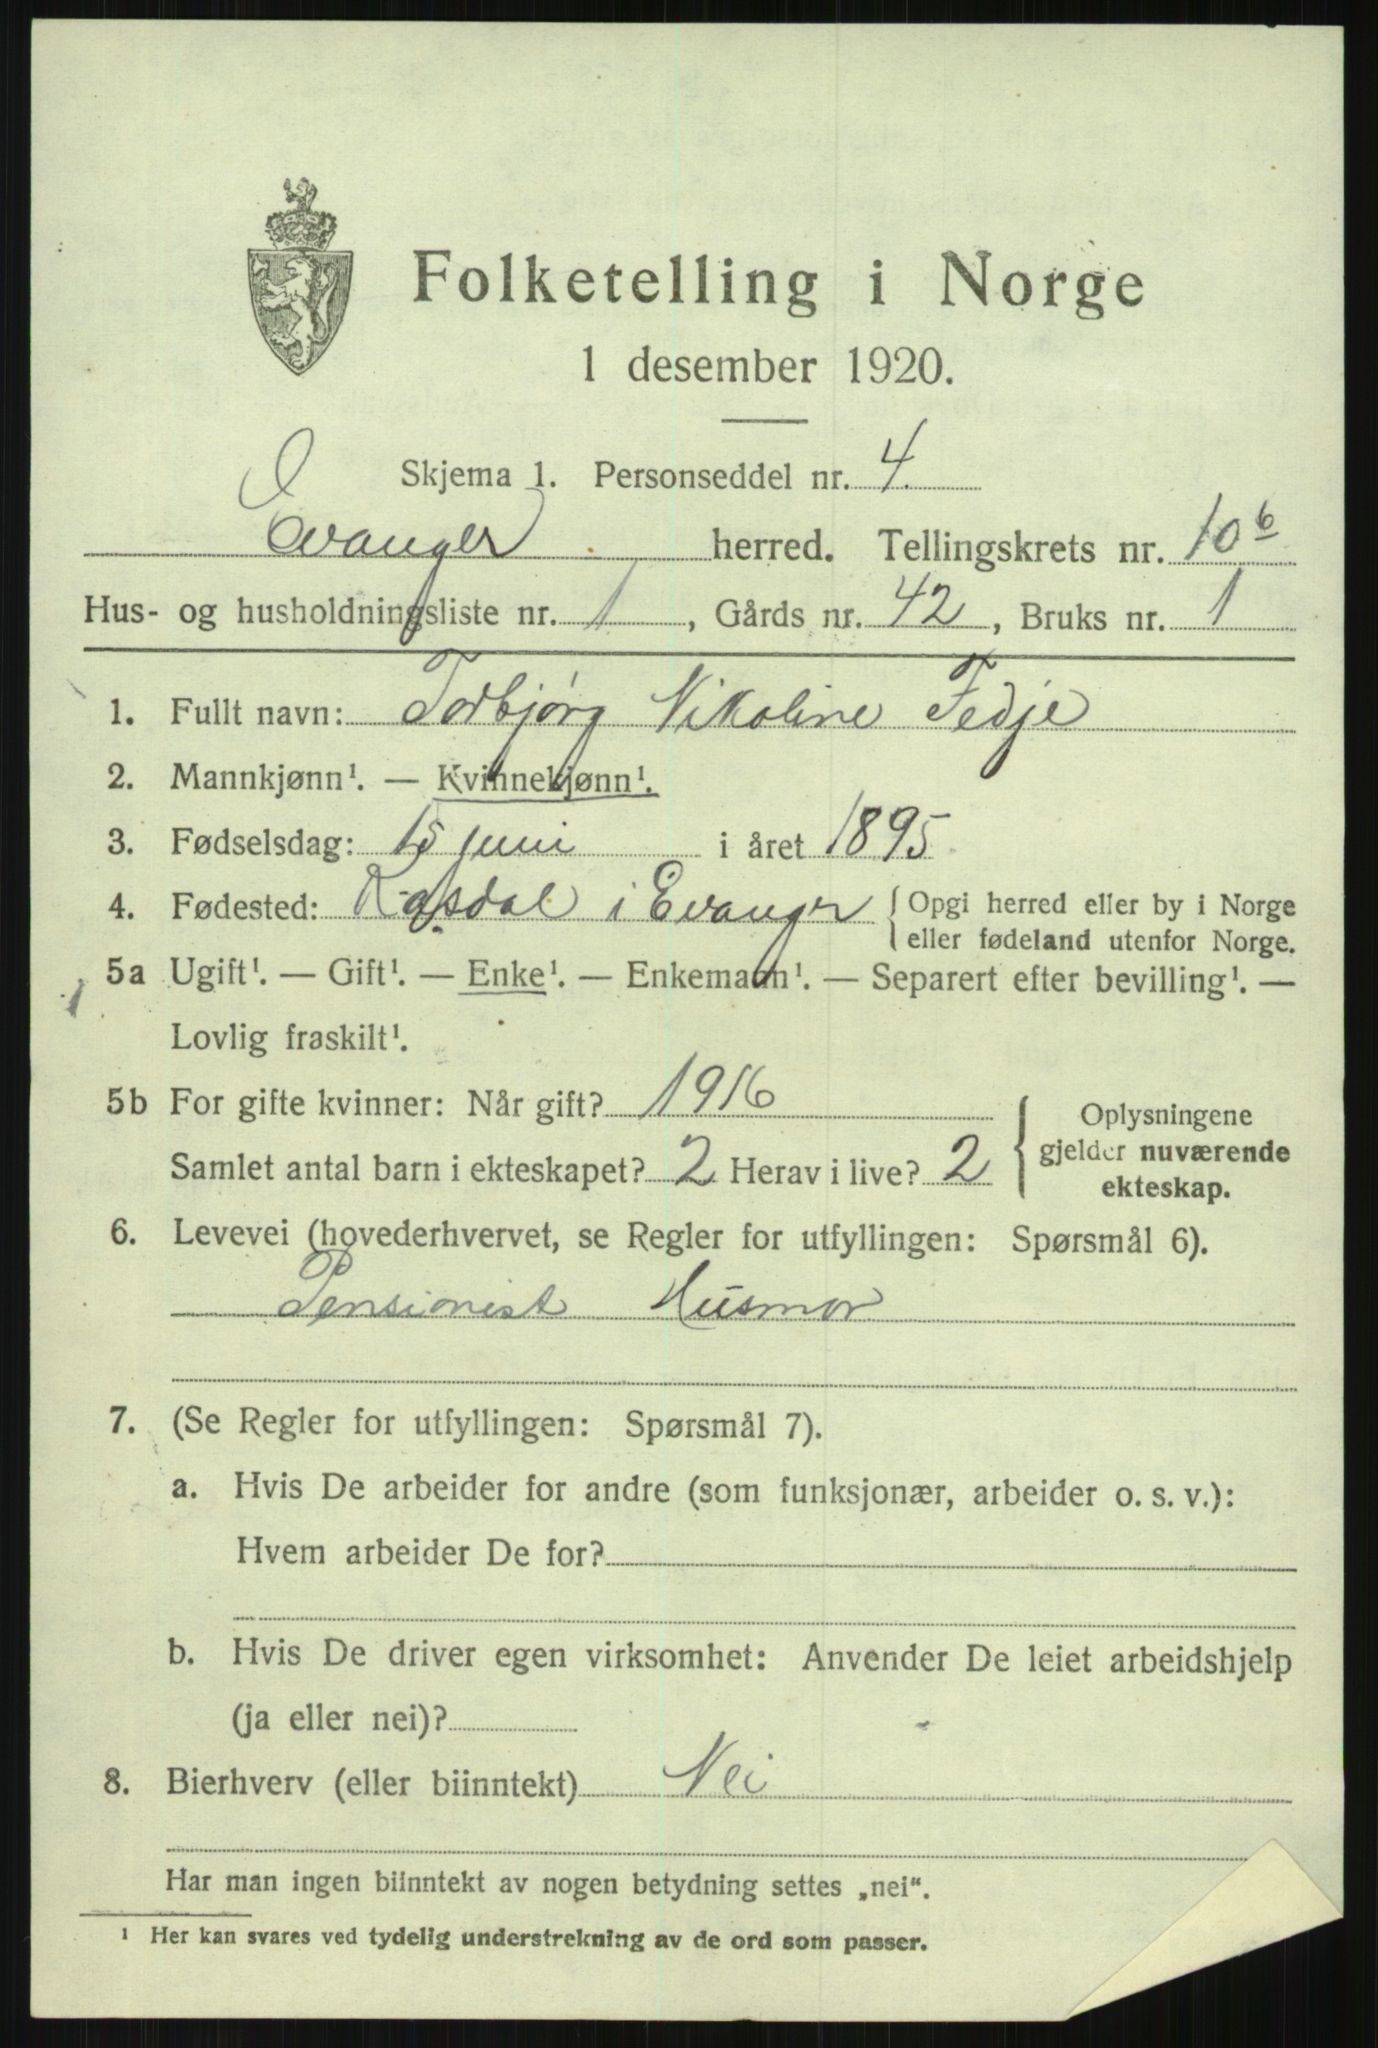 Folketelling i Norge
1 desember 1920.
Skjema 1. Personseddel nr. 4.
Evanger herred. Tellingskrets nr. 10 b
Hus- og husholdningsliste nr. 1, Gårds nr. 42, Bruks nr. 1
1. Fullt navn: Torbjørg Nikoline Fedje
2. Mannkjønn¹. — Kvinnekjønn¹.
3. Fødselsdag: 15 juni i året 1895.
4. Fødested: i Evanger { Opgi herred eller by i Norge
eller fødeland utenfor Norge.
5a Ugift¹. — Gift¹. — Enke¹. — Enkemann¹. — Separert efter bevilling¹. —
Lovlig fraskilt¹.
5b For gifte kvinner: Når gift? 1916
Samlet antal barn i ekteskapet? 2 Herav i live? 2
{ Oplysningene
gjelder nuværende
ekteskap.
6. Levevei (hovederhvervet, se Regler for utfyllingen: Spørsmål 6).
Pensionist Husmor
7. (Se Regler for utfyllingen: Spørsmål 7).
a. Hvis De arbeider for andre (som funksjonær, arbeider o. s. v.):
Hvem arbeider De for?
b. Hvis De driver egen virksomhet: Anvender De leiet arbeidshjelp
(ja eller nei)?
8. Bierhverv (eller biinntekt) Nei
Har man ingen biinntekt av nogen betydning settes „nei“.
¹ Her kan svares ved tydelig understrekning av de ord som passer.